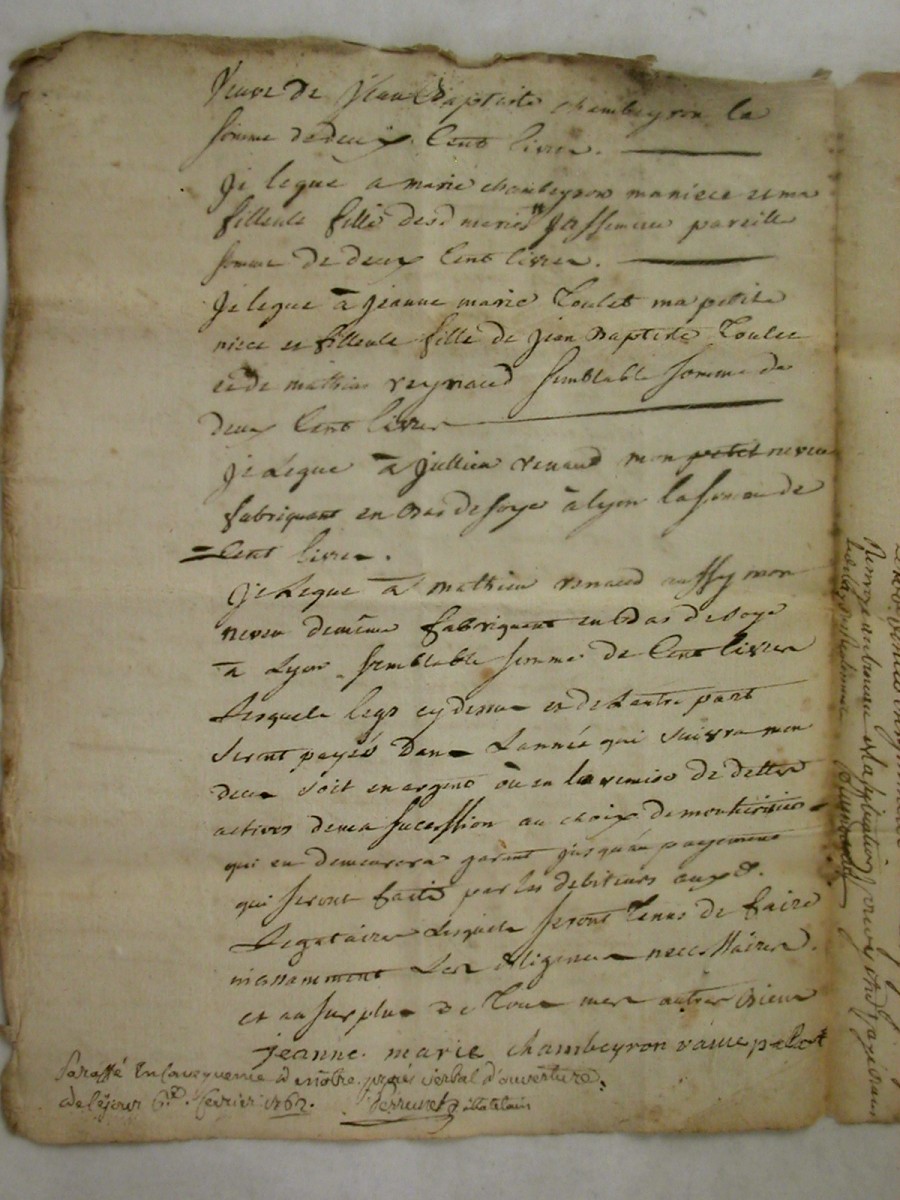 veuve de Jean Baptiste chambeyron la
somme de deux Cent livres.
Je legue a marie chambeyron ma niece et ma
filleule fille desd maries pareille
somme de deux Cent livres.
Je legue à jeanne marie Toulet ma petite
niece et filleule fille de jean Baptiste Toulet
et de mathie reynaud semblable somme de
deux Cent livres
je Legue à jullien renaud mon petit neveu
fabriquant en bas de soye à lyon la somme de
Cent livres.
Je Legue à mathieu renaud aussy mon
neveu demême fabriquant en bas de soye
à Lyon semblable somme de Cent livres
Lesquels legs cy dessus et de Lautre part
seront payés dans Lannée qui suivra mon
deces soit en argent où en la remise de dettes
actives de ma sucession au choix de mon heritier
qui en demeurera garent jusqu'au payement
qui seront faits par les debiteurs aux d.
Legataires Lesquels seront tenus de faire
incessamment Les diligences necessaires.
et au surplus de tous mes autres biens
jeanne marie chambeyron vauve pelot
Paraffé En Consequence de nôtre procés verbal d'ouverture.
de Céjour 6.e fevrier 1762. chatelain